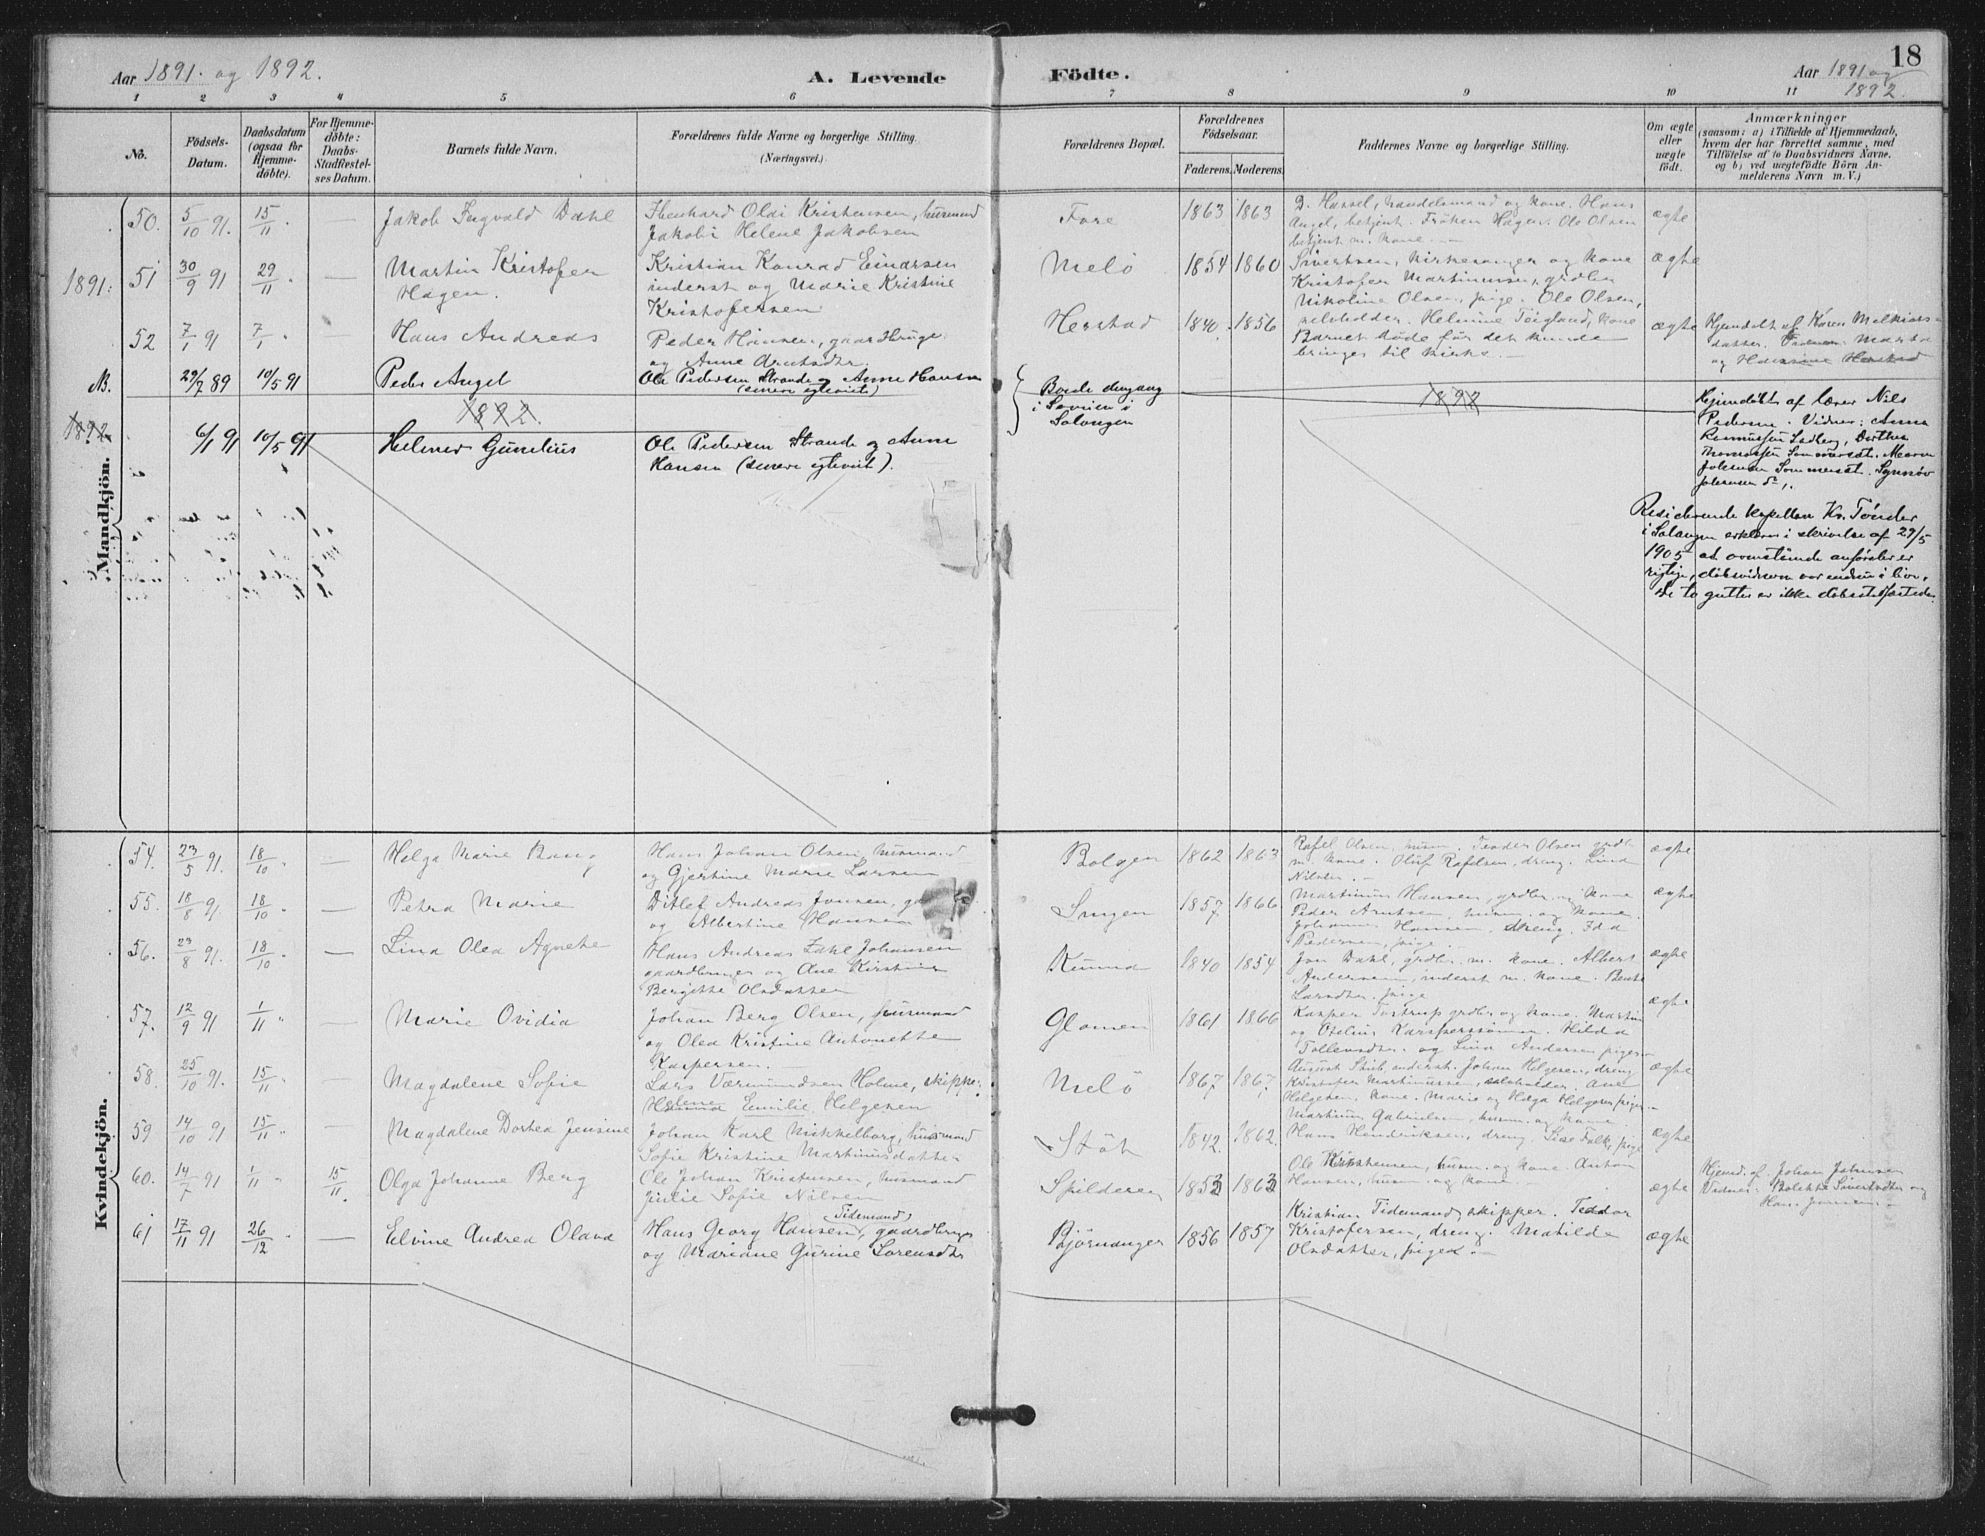 18
Aar 1891. og 1892.
A. Levende
Födte.
Aar 1891 og
1892.
1 2 3 4 5 6 7 8 9 10 11
No.
Födsels-
Datum.
Daabsdatum
(ogsaa for
Hjemme-
döbte).
For Hjemme-
döbte:
Daabs-
Stadfæstel-
ses Datum.
Barnets fulde Navn.
Forældrenes fulde Navne og borgerlige Stilling.
(Næringsvei.)
Forældrenes Bopæl.
Forældrenes
Födselsaar.
Faderens. Moderens.
Faddernes Navne og borgerlige Stilling.
Om ægte
eller
uægte
födt.
Anmærkninger
(saasom: a) i Tilfælde af Hjemmedaab,
hvem der har forrettet samme, med
Tilföielse af to Daabsvidners Navne,
og b) ved uægtefödte Börn An-
melderens Navn m. V.)
Mandkjön.
1891.
50. 5/10 91. 15/11 " — Jakob Ingvald Dahl
Ebenhard Oldi Kristensen, husmand
Jakobi Helene Jakobsen
Fore 1863 1863
D. Hassel, handelsmand og kone. Hans
Angel, betjent. Fröken Hagen. Ole Olsen
betjent m. kone. —
ægte
51 30/9 91 29/11 " — Martin Kristofer
Hagen.
Kristian Konrad Einarsen
inderst og Marie Kristine
Kristofersen
Melö 1854 1860
Sivertsen, kirkesanger og kone
Kristofer Martinussen, grdbr.
Nikoline Olsen, pige. Ole Olsen,
selveholder. Helmine Teigland, kone
ægte
52 7/1 91 7/1 " — Hans Andreas
Peder Hansen, gaardbruger
og Anne Arntsdtr.
Herstad 1840. 1856
Barnet döde för det kunde
bringes til kirke. —
ægte
Hjemdöbt af Karen Melkiors-
datter. Vidner: Marta
og Hansine Herstad
NB. 29/7 89 10/5 91 Peder Angel
Ole Pedersen Strande og Anne Hansen
(senere egteviet)
Boede dengang
i Sövien i
Salangen
1892
1892
1892
6/1 91 10/5 91 Helmer Gunelius
Ole Pedersen Strande og Anne
Hansen (senere egteviet).
Hjemdöbt af lærer Nils
Pedersen. Vidner: Anna
Rasmussen Ladberg, Dorthea
Thomassen Sommerset. Maren
Johansen Sommerset. Synnöv
Johansen do,.
Residerende kapellan Kr. Tönder
i Salangen erklærer i skrivelse af 29/5
1905 at ovenstående anförsler er
rigtige, dåbsvidnerne var endnu i live,
De to gutter er ikke dåbsstadfæstede.
Kvindekjön.
54. 23/5 91. 18/10 " — Helga Marie Bang
Hans Johan Olsen, husmand
og Gjertine Marie Larsen
Bolgen 1862 1863
Rafel Olsen, husm. Teoder Olsen grdbr
m. kone. Oluf Rafelsen, dreng. Lina
Nilsen. —
ægte
55. 18/8 91. 18/10 " — Petra Marie
Ditlef Andreas Jensen,
og Albertine Hansen
1857 1866
Martinus Hansen, grdbr. og kone
Peder Arntsen, husm. og kone.
Johannes Hansen, dreng. Ida
Pedersen, pige. —
ægte
56. 23/8 91. 18/10 " — Lina Olea Agnete
Hans Andreas Zahl Johansen
gaardbruger og Ane Kirstine
Bergitte Olsdatter
Kunna 1840 1854
Jon Dahl, grdbr. m. kone. Albert
Andersen, inderst m. kone. Beate
Larsdtr. pige
ægte
57. 12/9 91 1/11 " — Marie Ovidia
Johan Berg Olsen, husmand
og Olea Kristine Antonette
Kaspersen. —
Glomen 1861 1866
Kasper Tostrup grdbr. og kone. Martin
og Otelius Karspersönner. Hilda
Tollevsdtr. og Lina Andersen piger —
ægte
58. 25/10 91. 15/11 " — Magdalene Sofie
Lars Værmundsen Holme, skipper.
Helene Emilie Helgesen
Melö 1867 1867
August Stub, inderst. Johan Helgesen, dreng
Kristofer Martinussen, selveholder. Ane
Helgesen, kone. Marie og Helga Helgesen piger —
ægte
59 14/10 91 15/11 " — Magdalene Dortea Jensine
Johan Karl Mikkelborg, husmand
Sofie Kristine Martinusdatter
Stöt 1842. 1862.
Martinus Gabrielsen, husm. og kone.
Hans Hendriksen, dreng. Lise Falk, pige
ægte
60. 14/7 91 1/11 " 15/11. Olga Johanne Berg
Ole Johan Kristensen, husmand
Julie Sofie Nilsen
Spilderen 1853 1863
Ole Kristensen, husm. og kone. Anton
Hansen, husm. og kone. —
ægte
Hjemd. af Johan Johnsen
Vidner: Bolette Sivertsdtr og
Hans Jensen. —
61 17/11 91 26/12 " — Elvine Andrea Olava
Hans Georg Hansen (Tidemand), gaardbruger
og Mariane Gurine Sörensdtr
Björnanger 1856 1857
Kristian Tidemand, skipper. Teodor
Kristofersen, dreng. Matilde
Olsdatter, piger. —
ægte